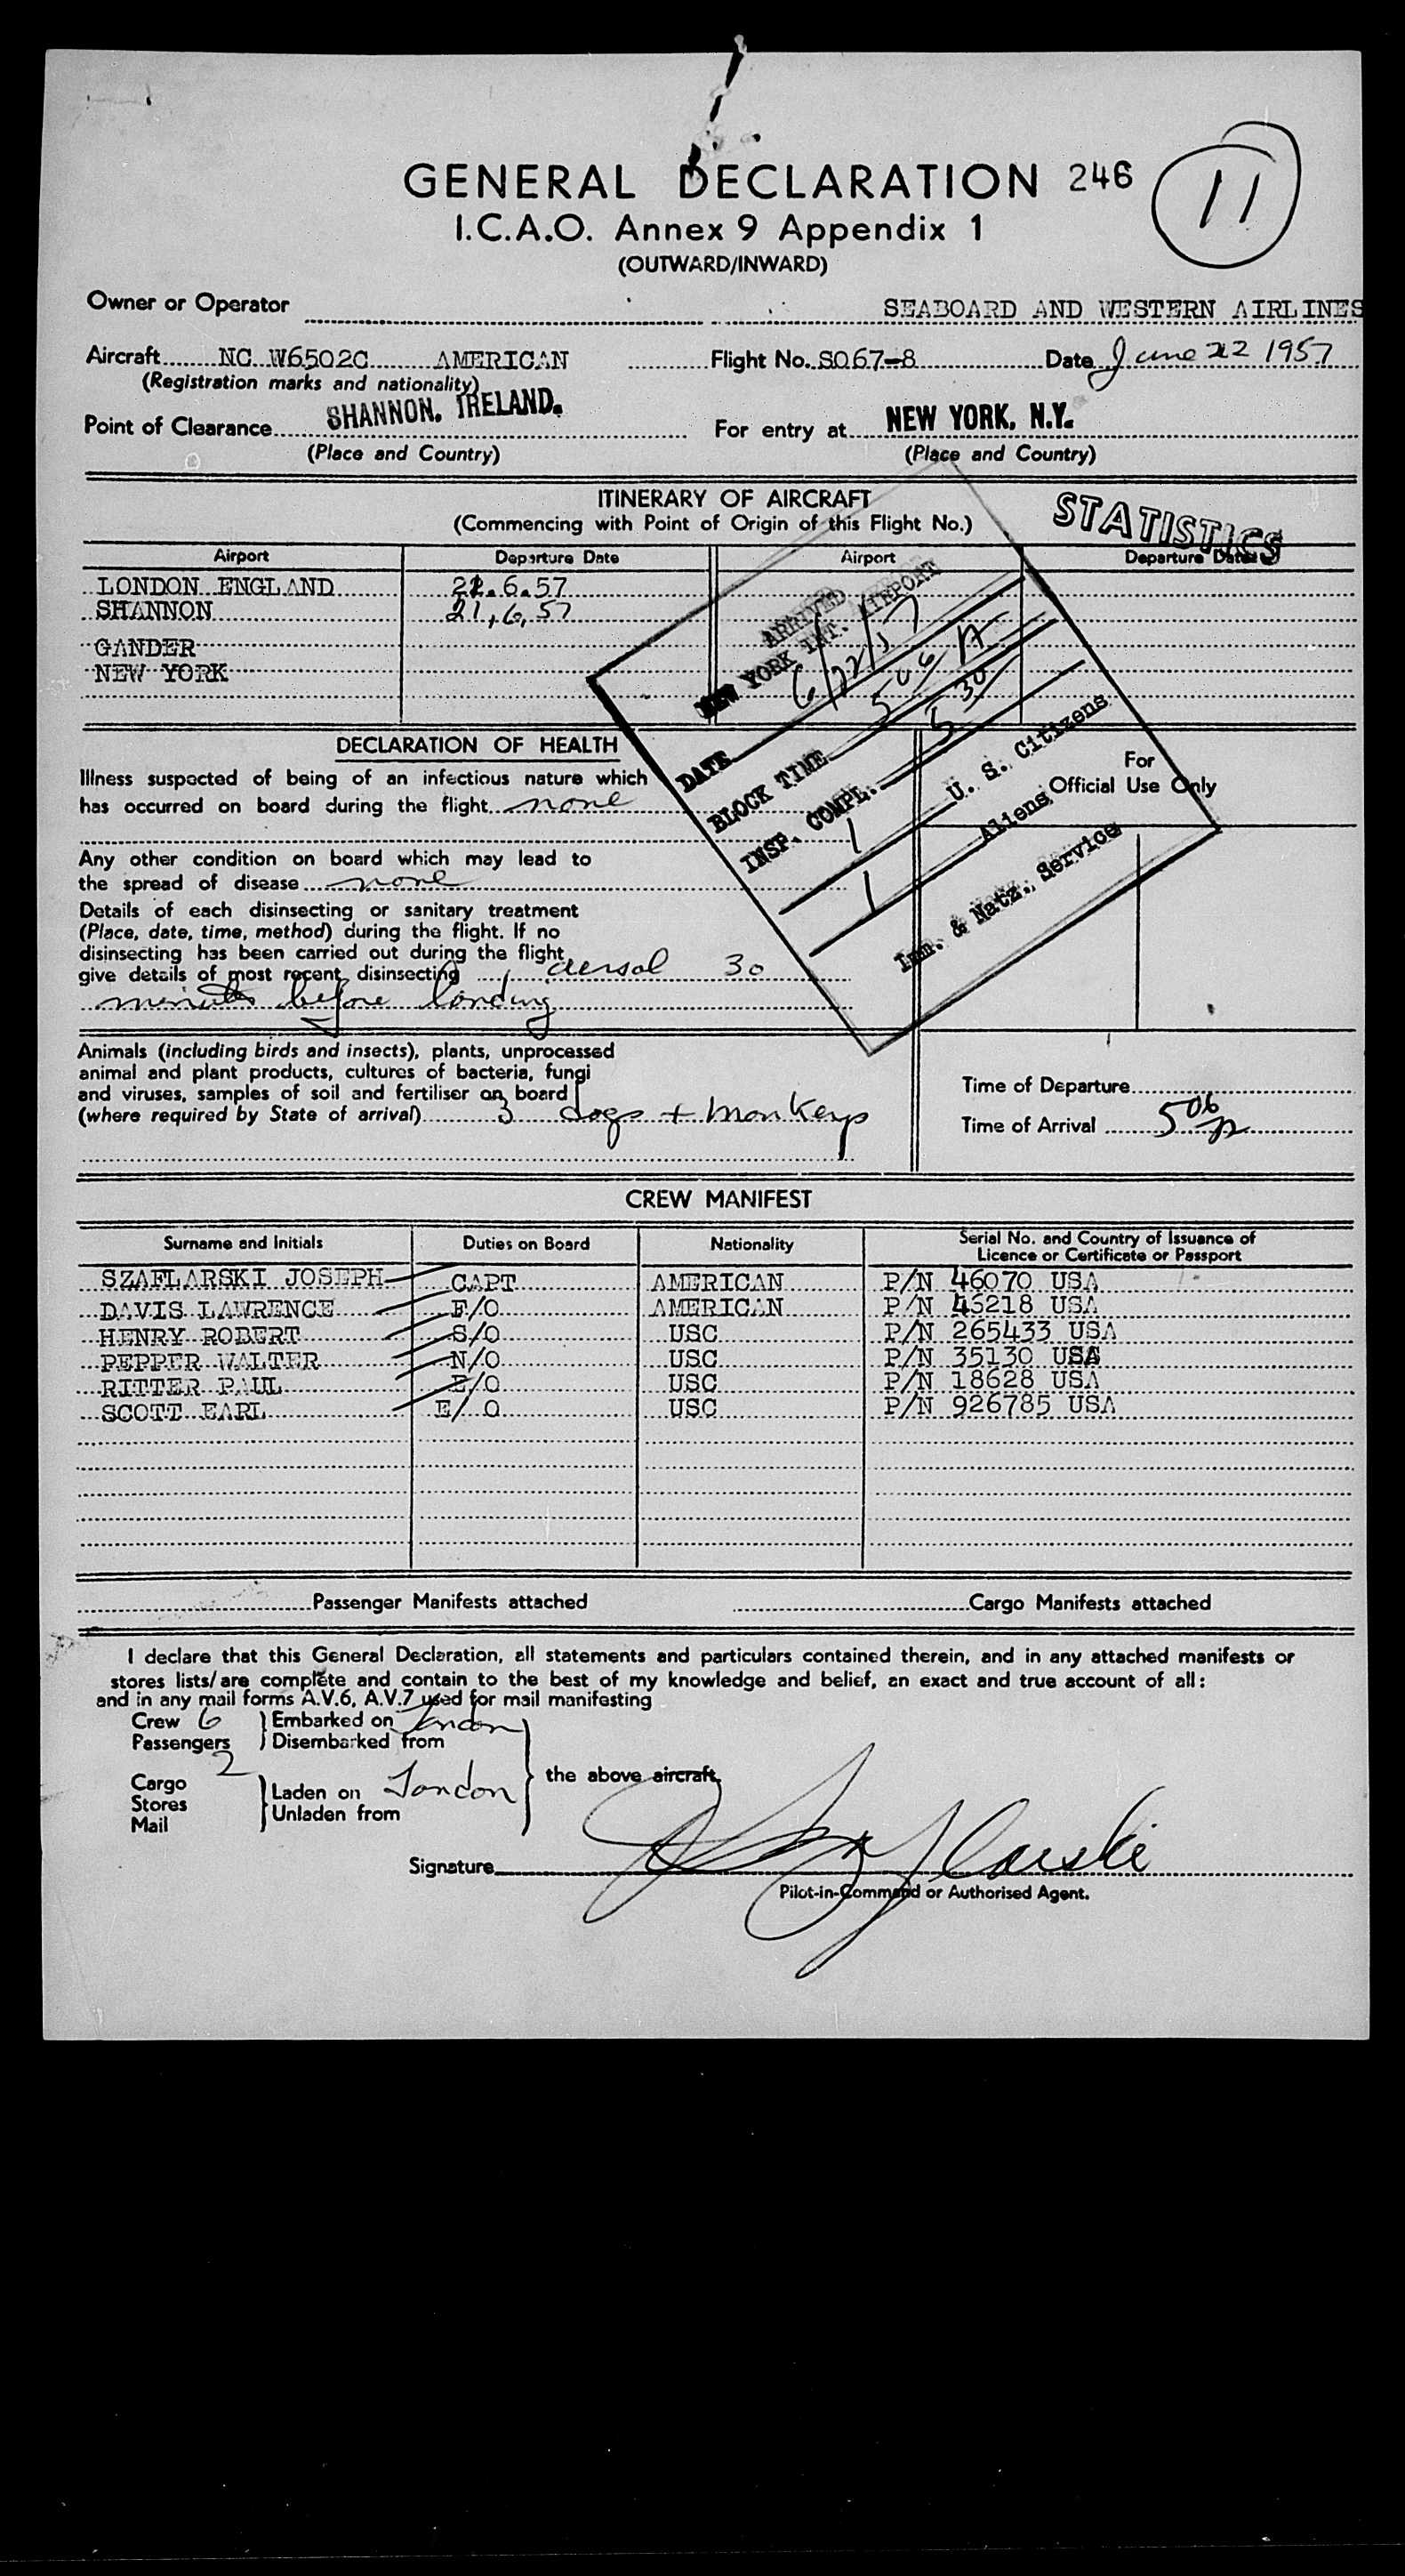 GENERAL DECLARATION 246
11
I.C.A.O. Annex 9 Appendix 1
(OUTWARD/INWARD)
Owner or Operator SEABOARD AND WESTERN AIRLINES
Aircraft NC W6502C AMERICAN Flight No. S067-8 Date June 22 1957
(Registration marks and nationality)
Point of Clearance SHANNON, IRELAND. For entry at NEW YORK, N.Y.
(Place and Country) (Place and Country)
ITINERARY OF AIRCRAFT
(Commencing with Point of Origin of this Flight No.)
STATISTICS
Airport Departure Date Airport Departure Date
LONDON ENGLAND 21.6.57
SHANNON 21,6,57
GANDER
NEW YORK
ARRIVED
NEW YORK INT. AIRPORT
DATE 6/22/57
BLOCK TIME 506 A
INSP. COMPL. 530
1 U. S. Citizens
1 Aliens
Imm. & Natz. Service
DECLARATION OF HEALTH
Illness suspected of being of an infectious nature which
has occurred on board during the flight none
For
Official Use Only
Any other condition on board which may lead to
the spread of disease none
Details of each disinsecting or sanitary treatment
(Place, date, time, method) during the flight. If no
disinsecting has been carried out during the flight
give details of most recent disinsecting aersol 30
minutes before landing
Animals (including birds and insects), plants, unprocessed
animal and plant products, cultures of bacteria, fungi
and viruses, samples of soil and fertiliser on board
(where required by State of arrival) 3 dogs + monkeys
Time of Departure
Time of Arrival 506
CREW MANIFEST
Surname and Initials Duties on Board Nationality Serial No. and Country of Issuance of
Licence or Certificate or Passport
SZAFLARSKI JOSEPH CAPT AMERICAN P/N 46070 USA
DAVIS LAWRENCE F/O AMERICAN P/N 45218 USA
HENRY ROBERT S/O USC P/N 265433 USA
PEPPER WALTER N/O USC P/N 35130 USA
RITTER PAUL E/O USC P/N 18628 USA
SCOTT EARL E/ O USC P/N 926785 USA
Passenger Manifests attached Cargo Manifests attached
I declare that this General Declaration, all statements and particulars contained therein, and in any attached manifests or
stores lists/are complete and contain to the best of my knowledge and belief, an exact and true account of all:
and in any mail forms A.V.6, A.V.7 used for mail manifesting
Crew 6 Embarked on London
Passengers 2 Disembarked from
the above aircraft.
Cargo
Stores Laden on London
Mail Unladen from
Signature J Szaflarski
Pilot-in-Command or Authorised Agent.